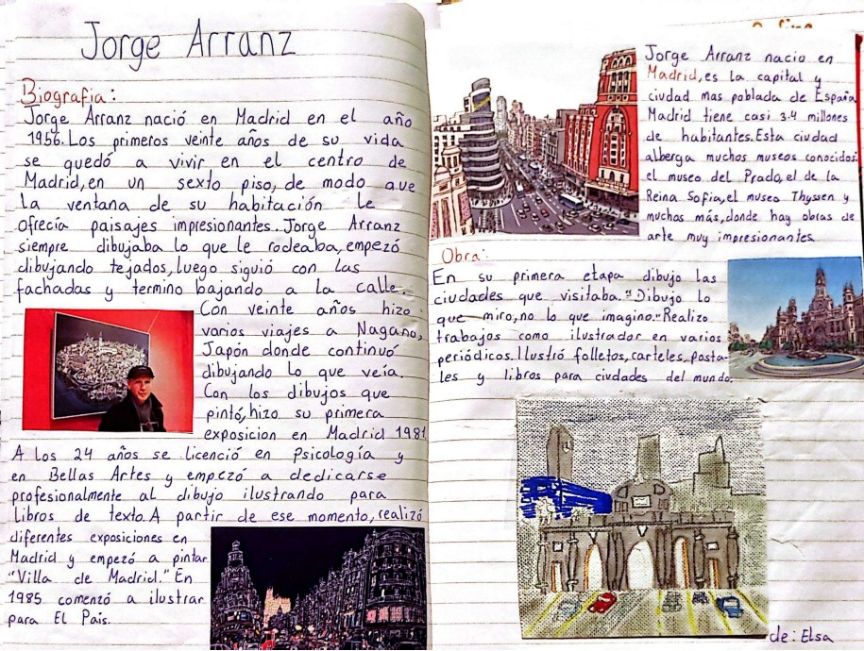 Jorge Arranz
Biografia:
Jorge Arranz nació en Madrid en el año
1956. Los primeros veinte años de su vida
se quedó a vivir en el centro de
Madrid, en un sexto piso, de modo que
la ventana de su habitación le
ofrecía paisajes impresionantes. Jorge Arranz
siempre dibujaba lo que le rodeaba, empezó
dibujando tejados, luego siguió con las
fachadas y termino bajando a la calle.
Con veinte años hizo
varios viajes a Nagano,
Japón donde continuó
dibujando lo que veía.
Con los dibujos que
pintó, hizo su primera
exposicion en Madrid 1981.
A los 24 años se licenció en Psicología y
en Bellas Artes y empezó a dedicarse
profesionalmente al dibujo ilustrando para
libros de texto. A partir de ese momento, realizó
diferentes exposiciones en
Madrid y empezó a pintar
"Villa de Madrid." En
1985 comenzó a ilustrar
para El Pais.
Jorge Arranz nacio en
Madrid, es la capital y
ciudad mas poblada de España
Madrid tiene casi 3.4 millones
de habitantes. Esta ciudad
alberga muchos museos conocidos
el museo del Prado, el de la
Reina Sofia, el museo Thyssen y
muchos más, donde hay obras de
arte muy impresionantes
Obra:
En su primera etapa dibujo las
ciudades que visitaba. "Dibujo lo
que miro, no lo que imagino." Realizo
trabajos como ilustrador en varios
periódicos. Ilustró folletos, carteles, posta-
les y libros para ciudades del mundo.
de: Elsa